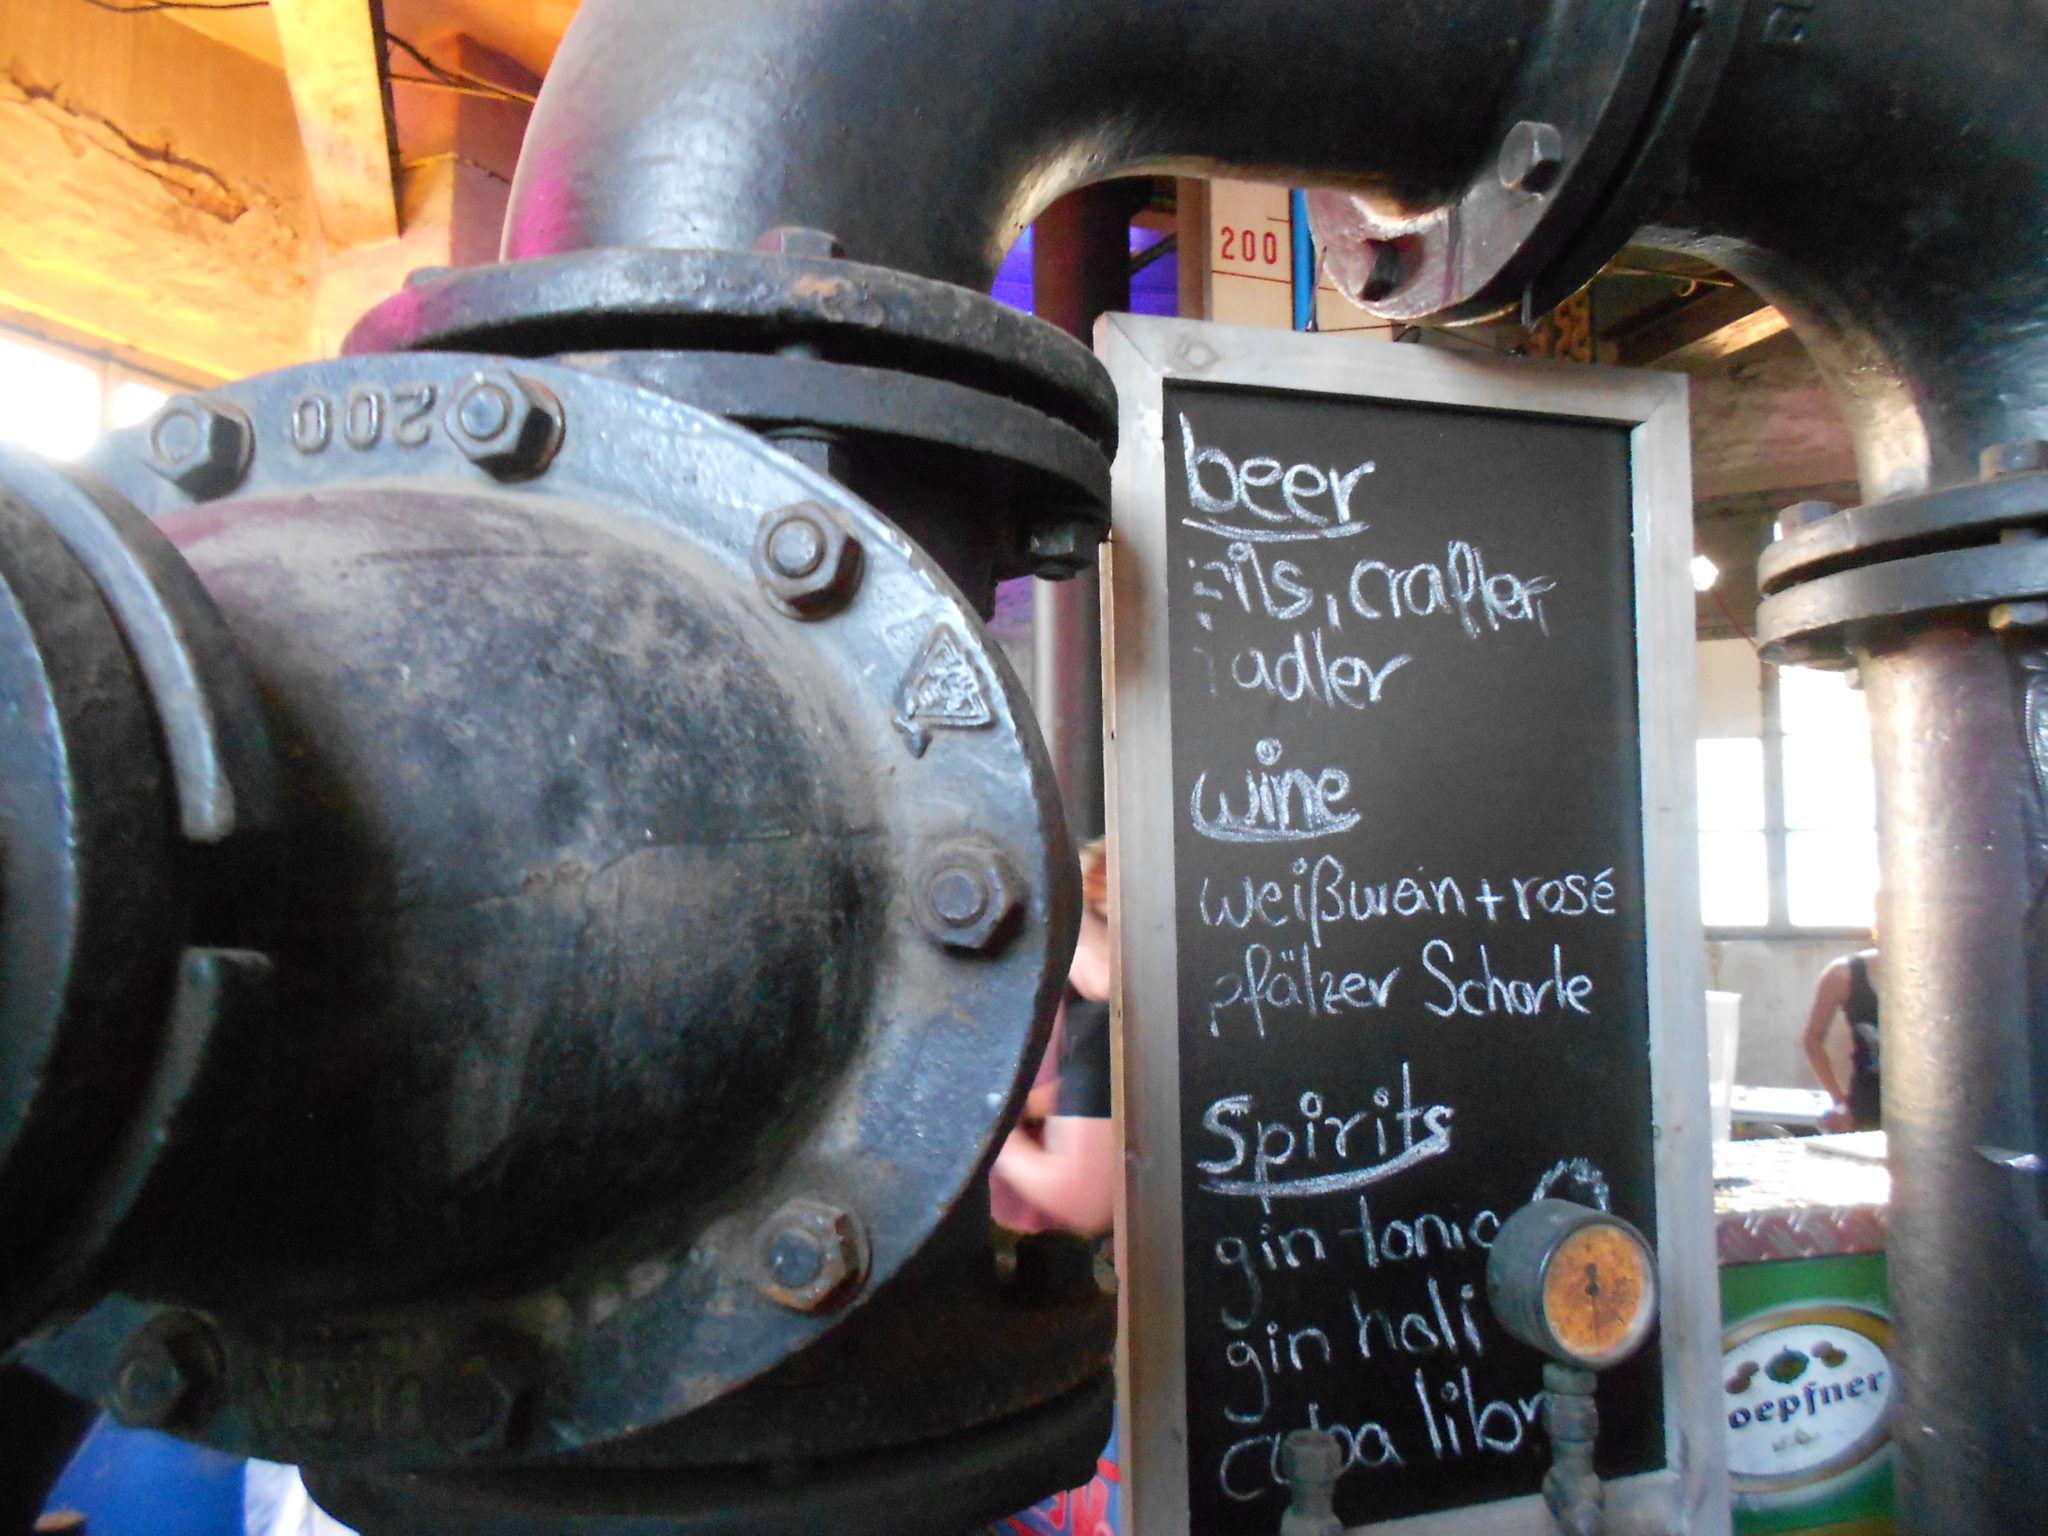 200
200
beer
pils, crafter,
radler
wine
weißwein + rosé
pfälzer Schorle
Spirits
gin tonic
gin holi
cuba libr
oepfner